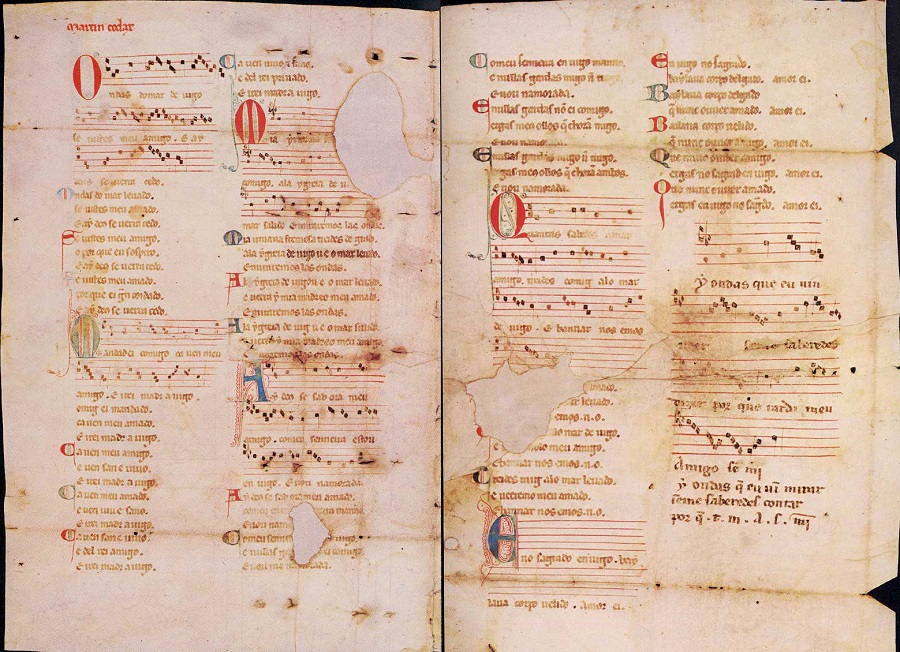 martin codax
Ondas do mar de uigo
se uistes meu amigo. E ay
deus se uerra cedo.
Ondas do mar leuado.
se uistes meu amado.
E ay deo se uerra cedo.
Se uistes meu amigo.
o por que eu sospiro.
E ay deo se uerra cedo.
Se uistes meu amado.
por que ei gran coidado.
E ay deo se uerra cedo.
Mandad ei comigo ca uen meu
amigo. E irei madr a uigo.
comig ei mandado.
ca uen meu amado.
E irei madr a uigo.
Ca uen meu amigo.
e uen san e uiuo.
E irei madr a uigo.
Ca uen meu amado.
e uen uiu e sano.
E irei madr a uigo.
Ca uen san e uiuo.
e del rei amigo.
E irei madr a uigo.
Ca uen uiuo e sano.
e del rei priuado.
E irei madr a uigo.
Mia yrmana
comigo. ala ygreia de ui
mar salido E miraremos las ondas.
Mia irmana fremosa treides de grado.
ala ygreia de uigo u e o mar leuado.
E miraremos las ondas.
A la ygreia de uigo u e o mar leuado.
e uerra y mia madre e meu amado.
E miraremos las ondas.
A la ygreia de uigo u e o mar salido.
e uerra y mia madre e meu amigo.
E miraremos las ondas.
Ay deo se sab ora meu
amigo. comeu senneira estou
en uigo. E uou namorada.
Ay deo se sab ora meu amado.
E uou namorada.
Comeu senneira en uigo manno.
e nullas gardas migo non trago.
E uou namorada.
E nullas gardas nõ ei comigo.
ergas meus ollos q̃ chorã migo.
E uou namorada.
E nullas gardas migo nõ trago.
ergas meus ollos q̃ chorã ambos.
E uou namorada.
Quantas sabedes amar
amigo. treides comig alo mar
de uigo. E bannar nos emos
E bannar nos emos.n.o.
Treides mig alo mar leuado.
e ueeremo meu amado.
E bannar nos emos.n.o.
Eno sagrado en uigo. bay
laua corpo uelido. Amor ei.
En uigo no sagrado.
baylaua corpo delgado. amor ei.
Baylaua corpo delgado
q̃ nunc ouuer amado. amor ei.
Bailaua corpo uelido.
q̃ nunc ouuer amigo. amor ei.
Que nunc ouuer amigo.
ergas no sagrad en uigo. amor ei.
Que nunc ouuer amado.
ergas en uigo no sagrado. amor ei.
Ay ondas que eu uin
ueer se me saberedes
dizer por que tarda meu
Amigo se mi
Ay ondas q̃ eu uĩ mirar
se me saberedes contar
por q̃ . t . m . A . s . mi